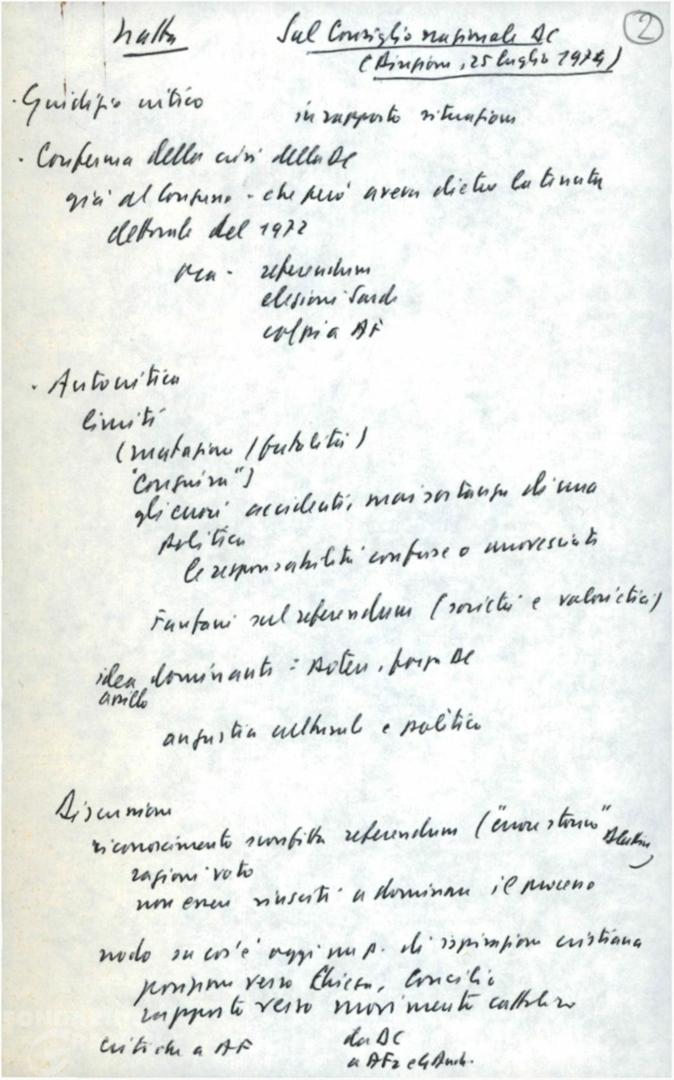 Natta Sul Consiglio nazionale DC 2
(Direzione, 25 luglio 1974)
· Giudizio critico in rapporto situazione
· Conferma della crisi della DC
già al Congresso - che però aveva dietro la tenuta
elettorale del 1972
ora - referendum
elezioni Sarde
colpi a AF
· Autocritica
limiti
(mutazione / fatalità)
"Congiura")
gli errori accidenti, mai sostanza di una
politica
le responsabilità confuse o rovesciate
Fanfani sul referendum (società e valori etici)
idea dominante: potere, forza DC
assillo
angustia culturale e politica
Discussione
riconoscimento sconfitta referendum ("errore storico"
ragioni voto
non essere riusciti a dominare il processo
nodo su cos'è oggi un p. di ispirazione cristiana
posizione verso Chiesa, Concilio
rapporto verso movimento cattolico
critiche a AF da DC
a AF e